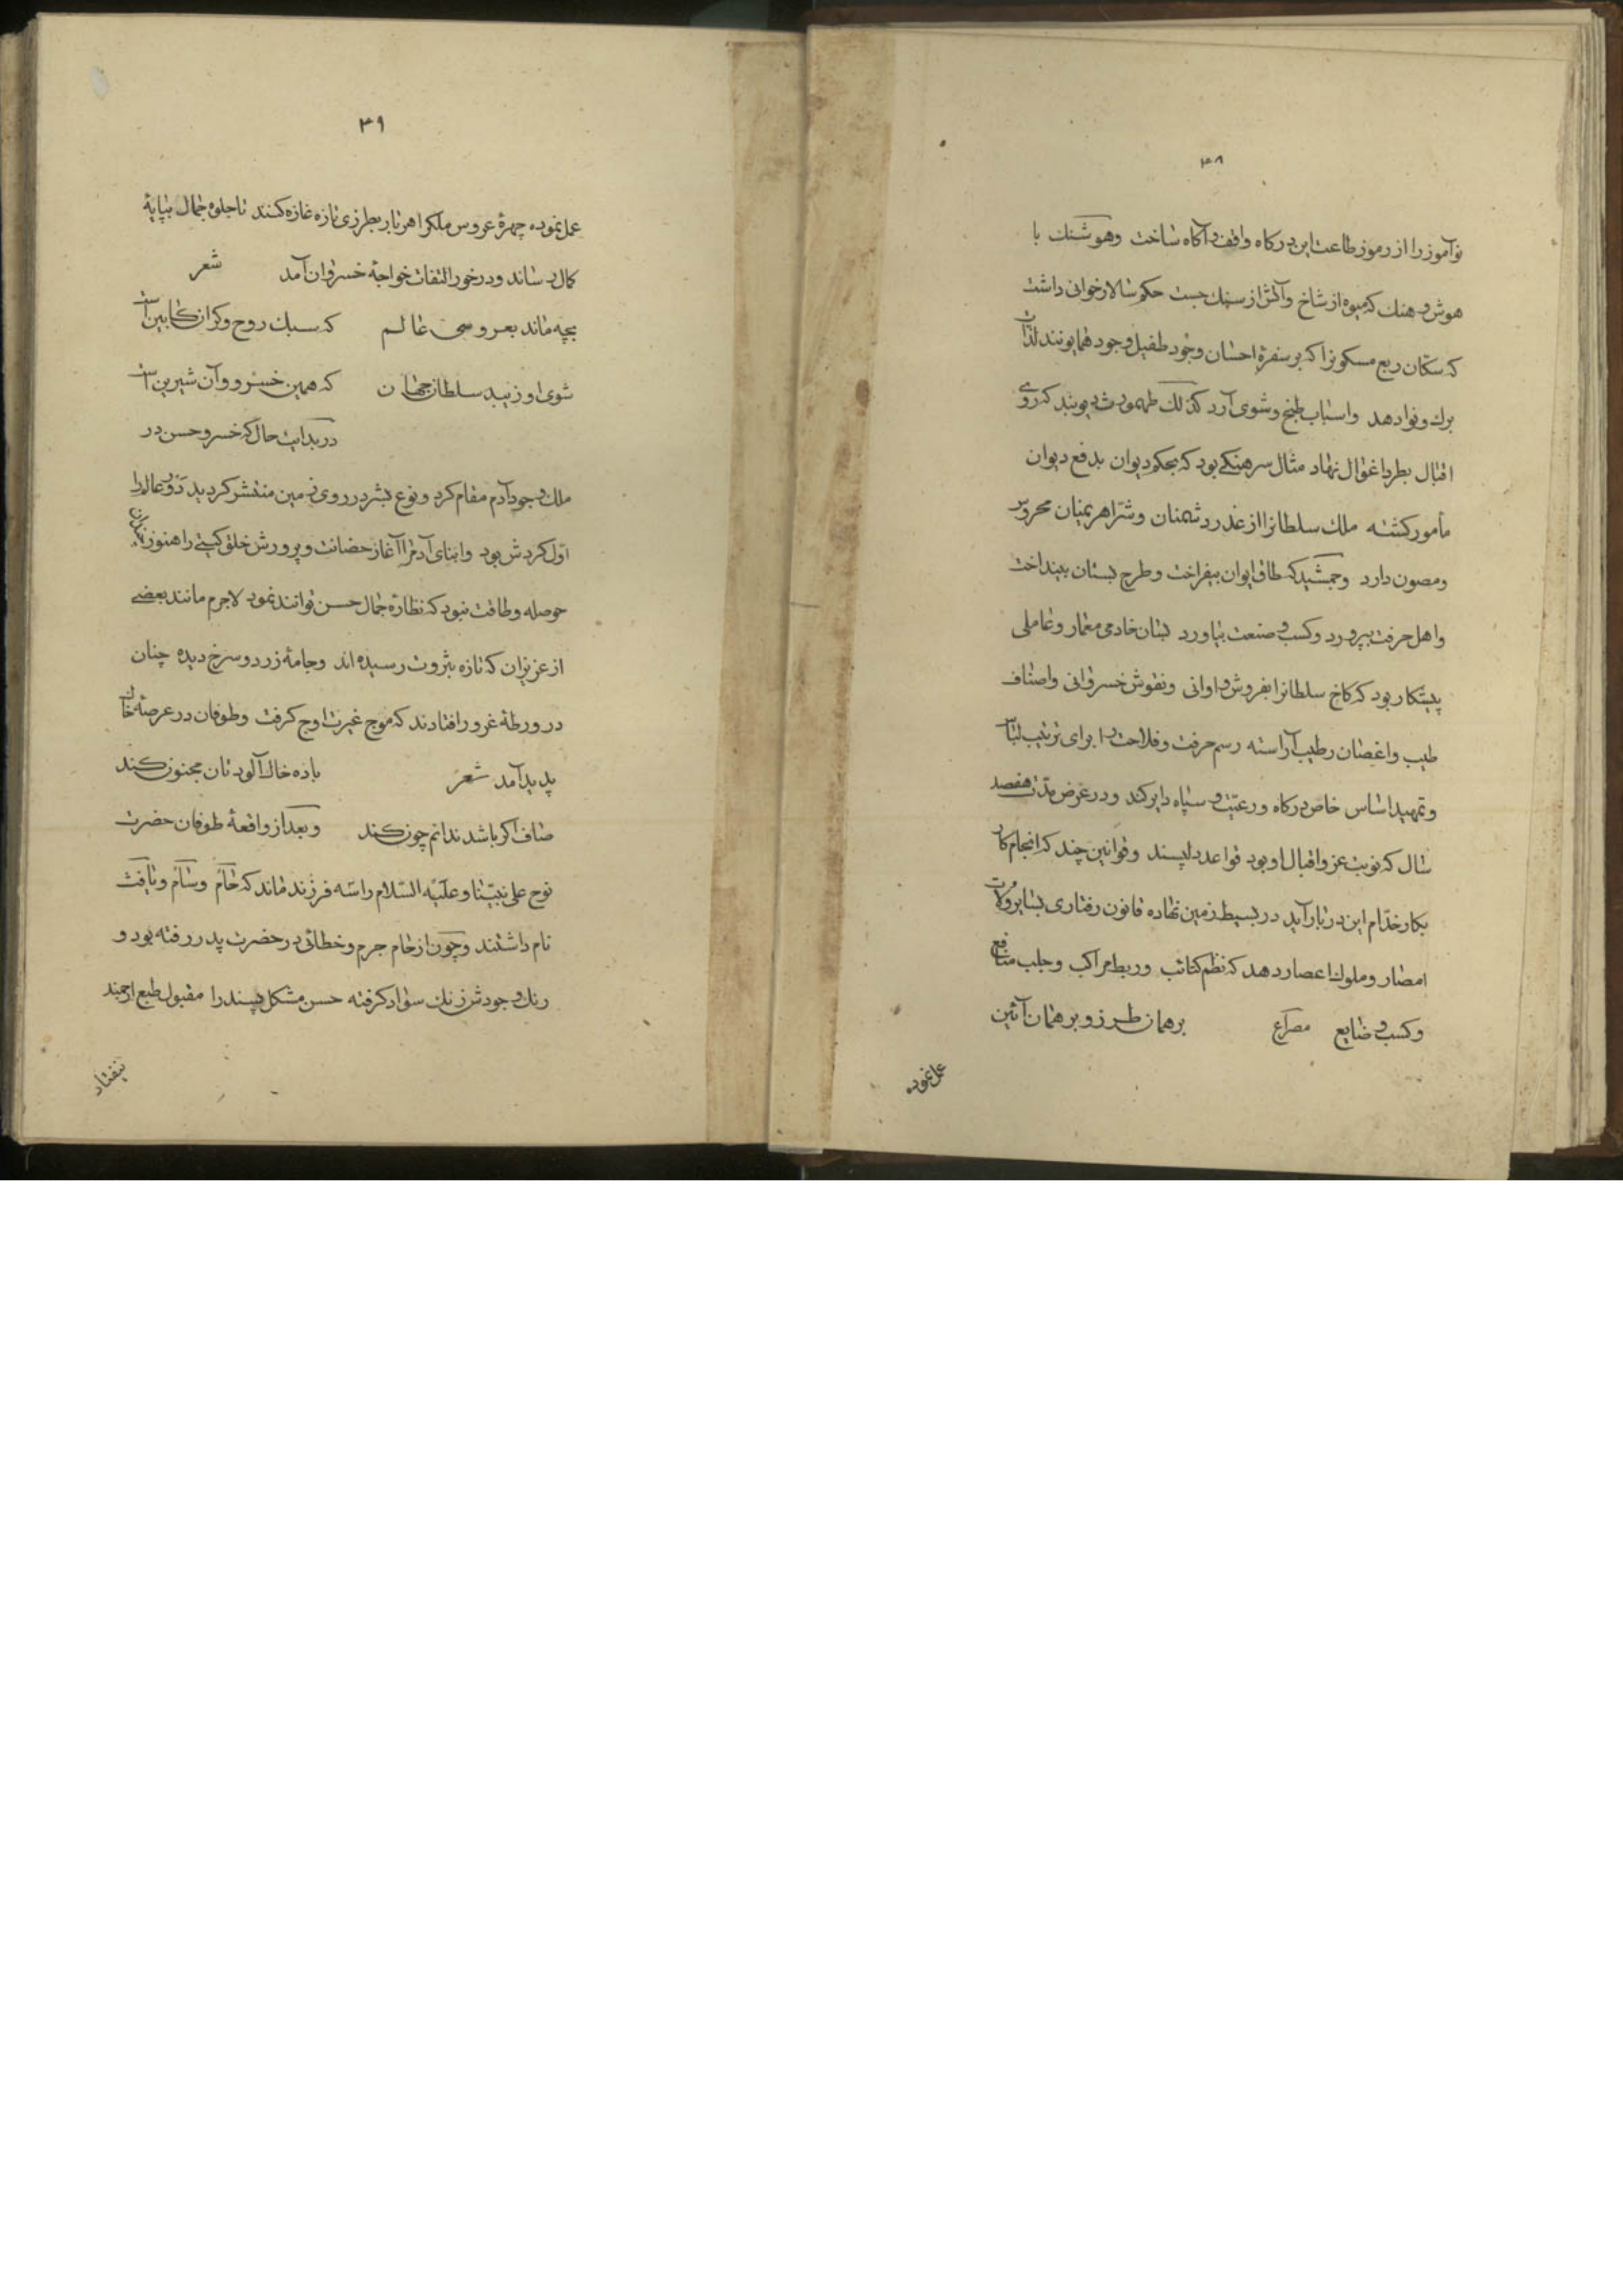 ۳۸
نوآموز را از رموز طاعت این درکاه واقف و آکاه ساخت وهوشنك با
هوش و هنك که میوه از شاخ و آتش از سنك جست حکم سالار خوانی داشت
که سکان ربع مسکونرا که بر سفرۀ احسان وجود طفیل وجود همایونند لذات
برك و نوا دهد واسباب طبخ و شوی آرد کذلك طهمورث دیوبند که روی
اقبال بطرد اغوال نهاد مثال سرهنکی بود که بحکم دیوان بدفع دیوان
مأمور کشته ملك سلطانرا از غدر دشمنان وشر اهریمنان محروس
ومصون دارد وجمشید که طاق ایوان بیفراخت وطرح بستان بینداخت
واهل حرفت بپرورد وکسب و صنعت بیاورد بسان خادمی معمار وعاملی
پیشکار بود که کاخ سلطانرا بفروش و اوانی ونقوش خسروانی واصناف
طیب واغصان رطیب آراسته رسم حرفت وفلاحت را برای ترتیب لباس
وتمهید اساس خاص درکاه ورعیت و سپاه دایر کند ودر عرض مدت هفصد
سال که نوبت عز واقبال او بود قواعد دلپسند وقوانین چند که انجام کار
بکار خدام این دربار آید در بسیط زمین نهاده قانون رفتاری بسایر ولات
امصار وملوك اعصار دهد که نظم کتائب وربط مراکب وجلب منافع
وکسب و ضایع مصراع برهمان طرز و برهمان آئین
عمل نموده
۳۹
عمل نموده چهرۀ عروس ملکرا هر بار بطرزی تازه غازه کنند تا جلوه جمال بپایۀ
کمال رساند ودر خور التفات خواجۀ خسروان آمد شعر
بچه ماند بعروسی عالم که سبك روح وکران کابین است
شوی او زیبد سلطان جهان که همین خسرو وآن شیرین است
در بدایت حال که خسرو حسن در
ملك وجود آدم مقام کرد ونوع بشر در روی زمین منتشر کردید دور عالم را
اول کردش بود وابنای آدم را آغاز حضانت و پرورش خلق کیتی را هنوز چندان
حوصله وطاقت نبود که نظارۀ جمال حسن توانند نمود لاجرم مانند بعضی
از عزیزان که تازه بثروت رسیده اند وجامۀ زرد وسرخ دیده چنان
در ورطۀ غرور افتادند که موج غیرت اوج کرفت وطوفان در عرصۀ خاك
پدید آمد شعر باده خاك آلودتان مجنون کند
صاف اکر باشد ندانم چون کند وبعد از واقعۀ طوفان حضرت
نوح علی نبینا وعلیه السلام را سه فرزند ماند که حام وسام ویافث
نام داشتند وچون از حام جرم وخطائی در حضرت پدر رفته بود و
رنك وجودش زنك سواد کرفته حسن مشکل پسند را مقبول طبع ارجمند
نیفتاد